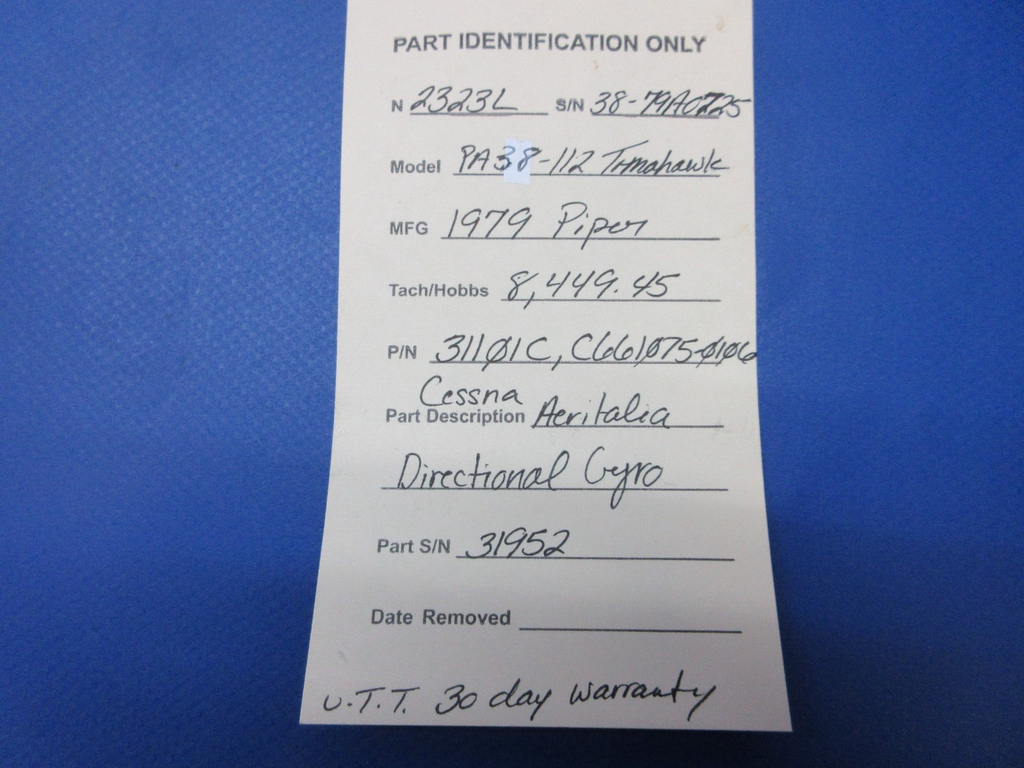 PART IDENTIFICATION ONLY
N 2323L S/N 38-79A0225
Model PA38-112 Tomahawk
MFG 1979 Piper
Tach/Hobbs 8,449.45
P/N 311Ø1C, C661Ø75-Ø1Ø6
Cessna
Part Description Aeritalia
Directional Gyro
Part S/N 31952
Date Removed
U.T.T. 30 day warranty